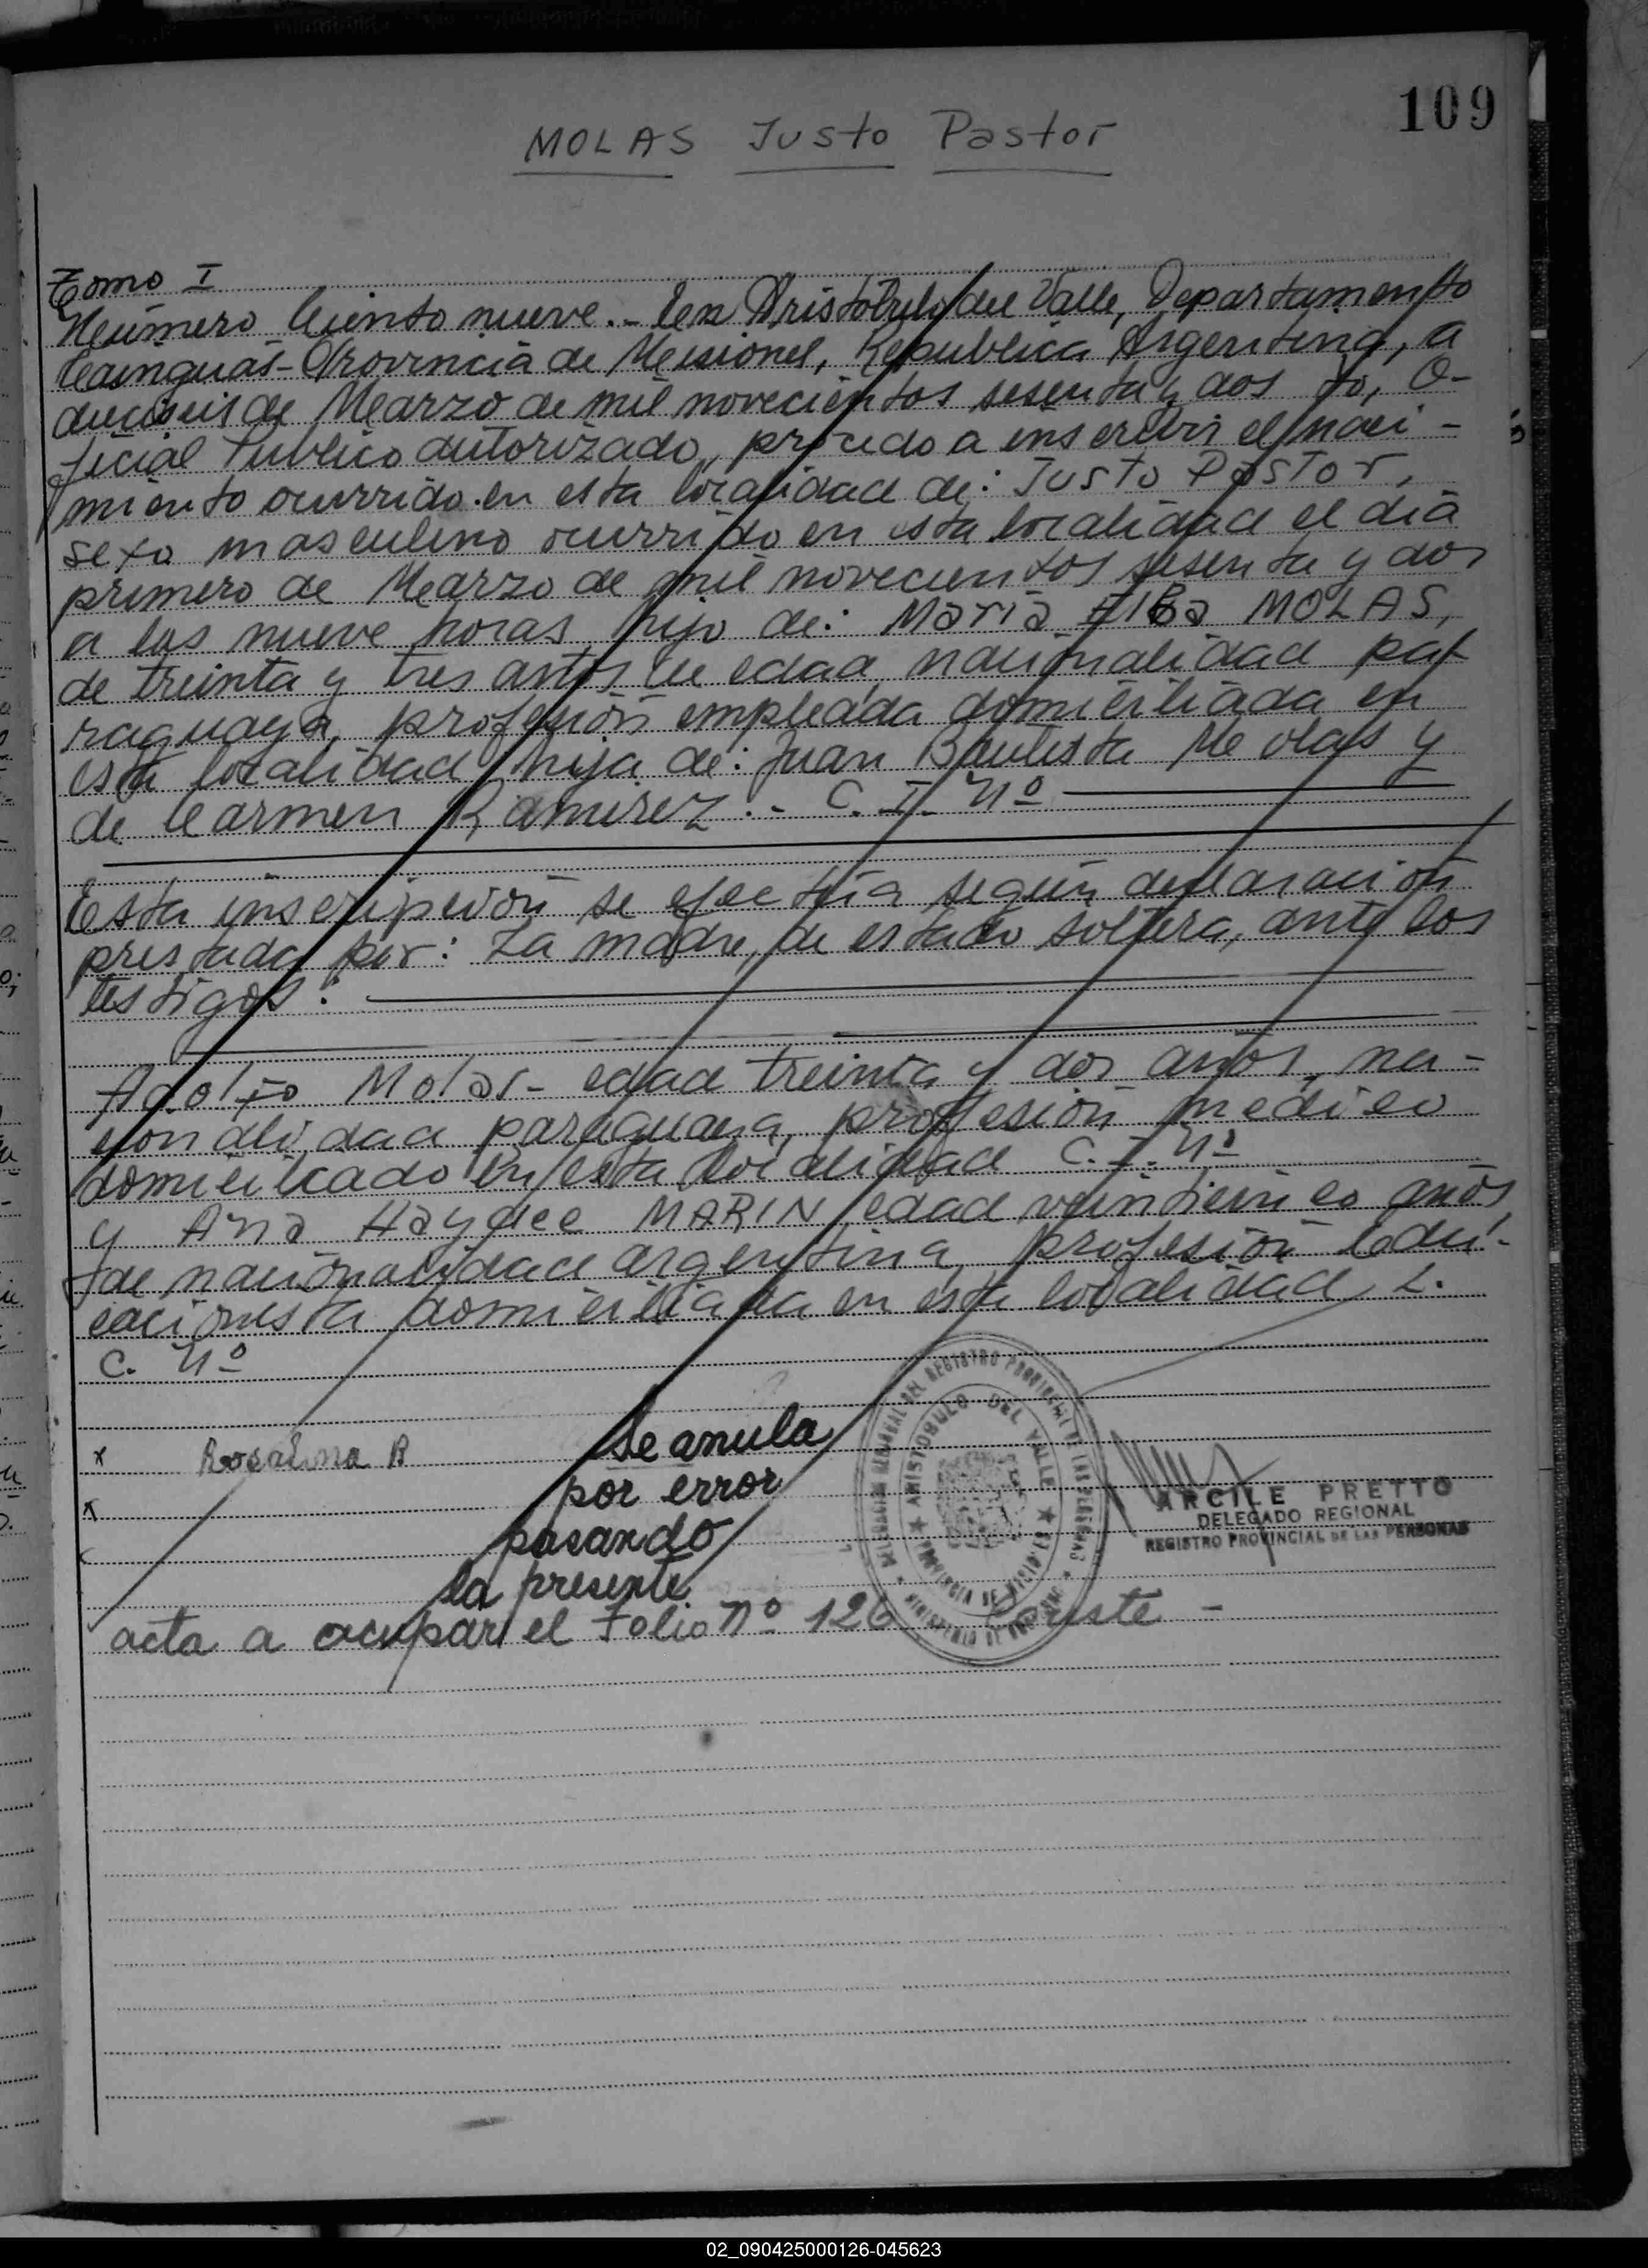 109
MOLAS Justo Pastor
Tomo I
Número Ciento nueve.- En Aristóbulo del Valle, Departamento
Cainguás - Provincia de Misiones, República Argentina, a
dieciseis de Marzo de mil novecientos sesenta y dos yo, O-
ficial Público autorizado, procedo a inscribir el naci-
miento ocurrido en esta localidad de: Justo Pastor,
sexo masculino ocurrido en esta localidad el día
primero de Marzo de mil novecientos sesenta y dos
a las nueve horas, hijo de: María Elba MOLAS,
de treinta y tres años de edad, nacionalidad pa-
raguaya, profesión empleada domiciliada en
esta localidad hija de: Juan Bautista Molas y
de Carmen Ramirez.- C. I. Nº
Esta inscripción se efectúa según declaración
prestada por: La madre, de estado soltera, ante los
testigos:
Adolfo Molas - edad treinta y dos años, na-
cionalidad paraguaya, profesión medico
domiciliado en esta localidad C. I. Nº
y Ana Haydee MARIN edad veinticinco años
de nacionalidad argentina, profesión Edu-
cacionista domiciliada en esta localidad L.
C. Nº
x Rosalina R
Se anula
por error
pasando
la presente
acta a ocupar el Folio Nº 126
DELEGACION REGIONAL DEL REGISTRO PROVINCIAL DE LAS PERSONAS
ARISTOBULO DEL VALLE
PROVINCIA DE MISIONES
MINISTERIO DE GOBIERNO
ARCILE PRETTO
DELEGADO REGIONAL
REGISTRO PROVINCIAL DE LAS PERSONAS
02_090425000126-045623